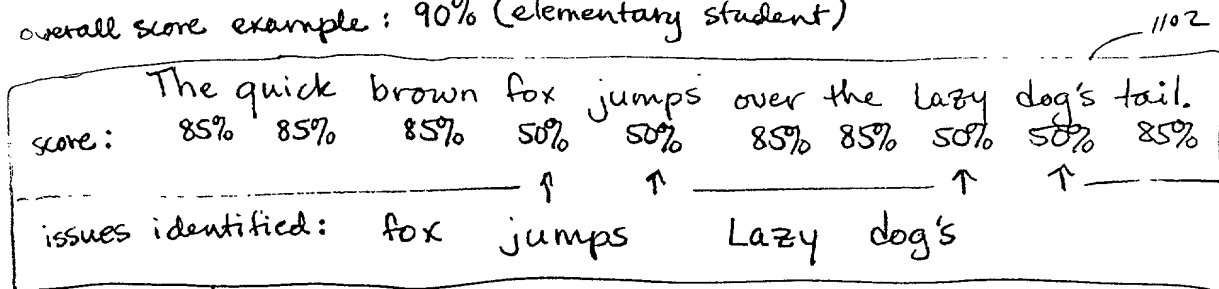 overall score example: 90% (elementary student)
1102
The quick brown fox jumps over the Lazy dog's tail.
score: 85% 85% 85% 50% 50% 85% 85% 50% 50% 85%
↑ ↑ ↑ ↑
issues identified: fox jumps Lazy dog's